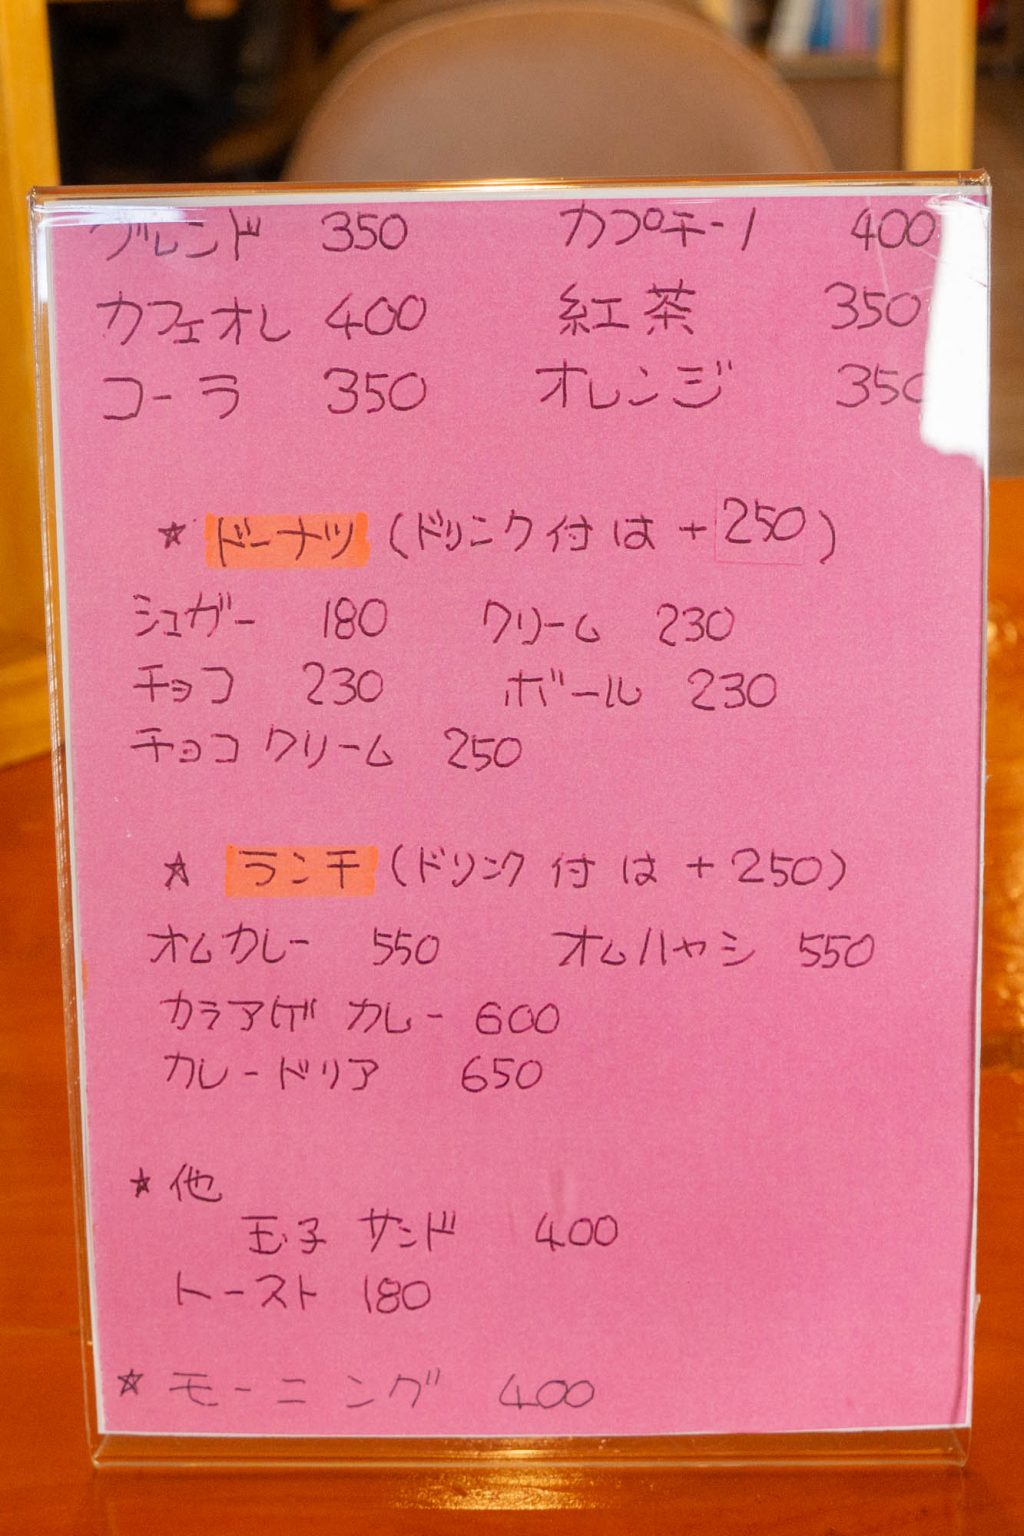 ブレンド 350 カプチーノ 400
カフェオレ 400 紅茶 350
コーラ 350 オレンジ 350
☆ ドーナツ (ドリンク付は + 250)
シュガー 180 クリーム 230
チョコ 230 ボール 230
チョコクリーム 250
☆ ランチ (ドリンク付は + 250)
オムカレー 550 オムハヤシ 550
カラアゲカレー 600
カレードリア 650
☆ 他
玉子サンド 400
トースト 180
☆ モーニング 400